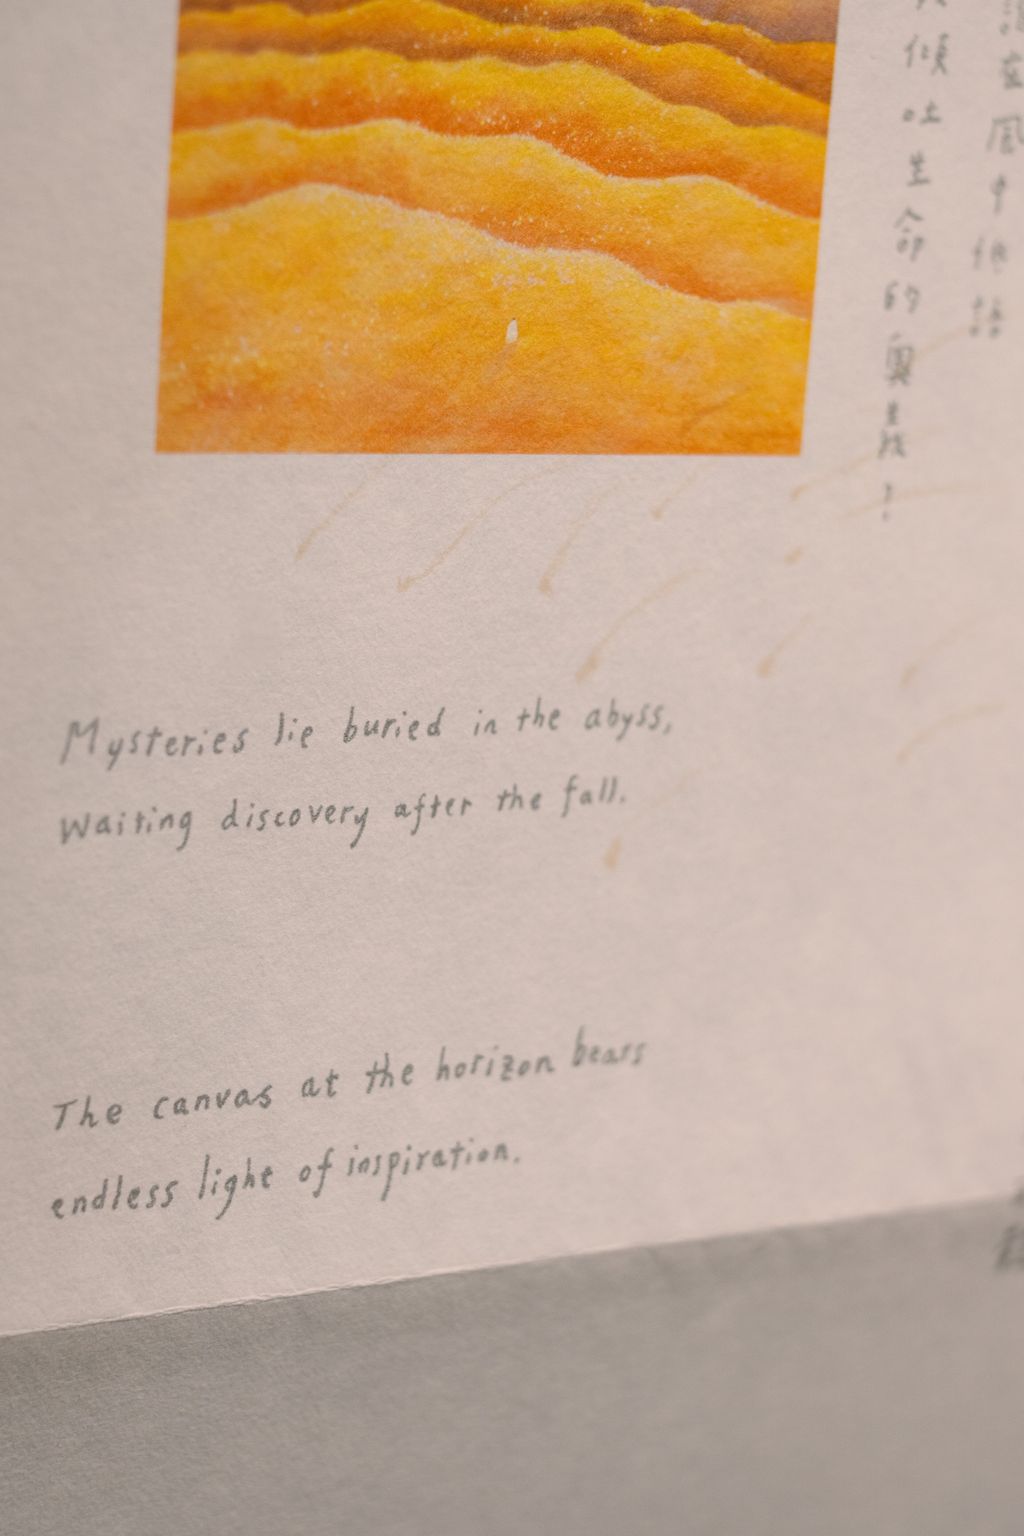 傾吐生命的奧義！
Mysteries lie buried in the abyss,
Waiting discovery after the fall.
The canvas at the horizon bears
endless light of inspiration.